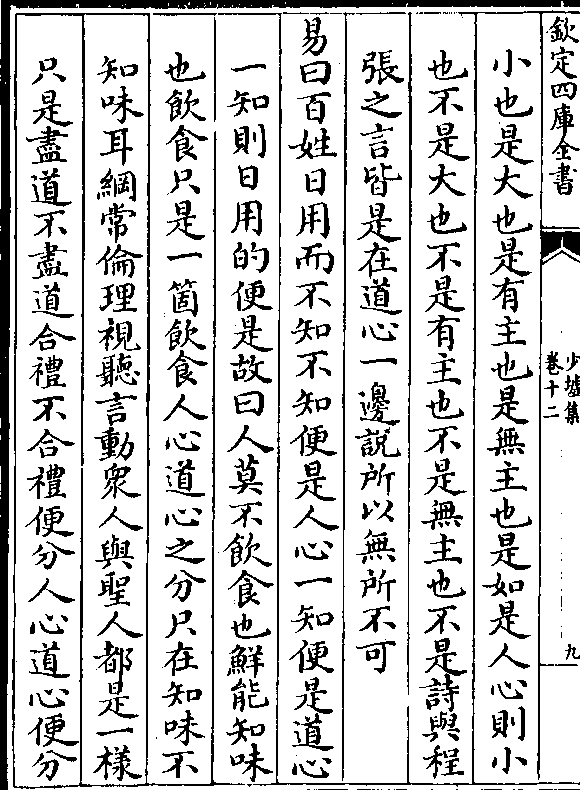 欽定四庫全書
少墟集
卷十二
九
小也是大也是有主也是無主也是如是人心則小
也不是大也不是有主也不是無主也不是詩與程
張之言皆是在道心一邊說所以無所不可
易曰百姓日用而不知不知便是人心一知便是道心
一知則日用的便是故曰人莫不飲食也鮮能知味
也飲食只是一箇飲食人心道心之分只在知味不
知味耳綱常倫理視聽言動衆人與聖人都是一樣
只是盡道不盡道合禮不合禮便分人心道心便分